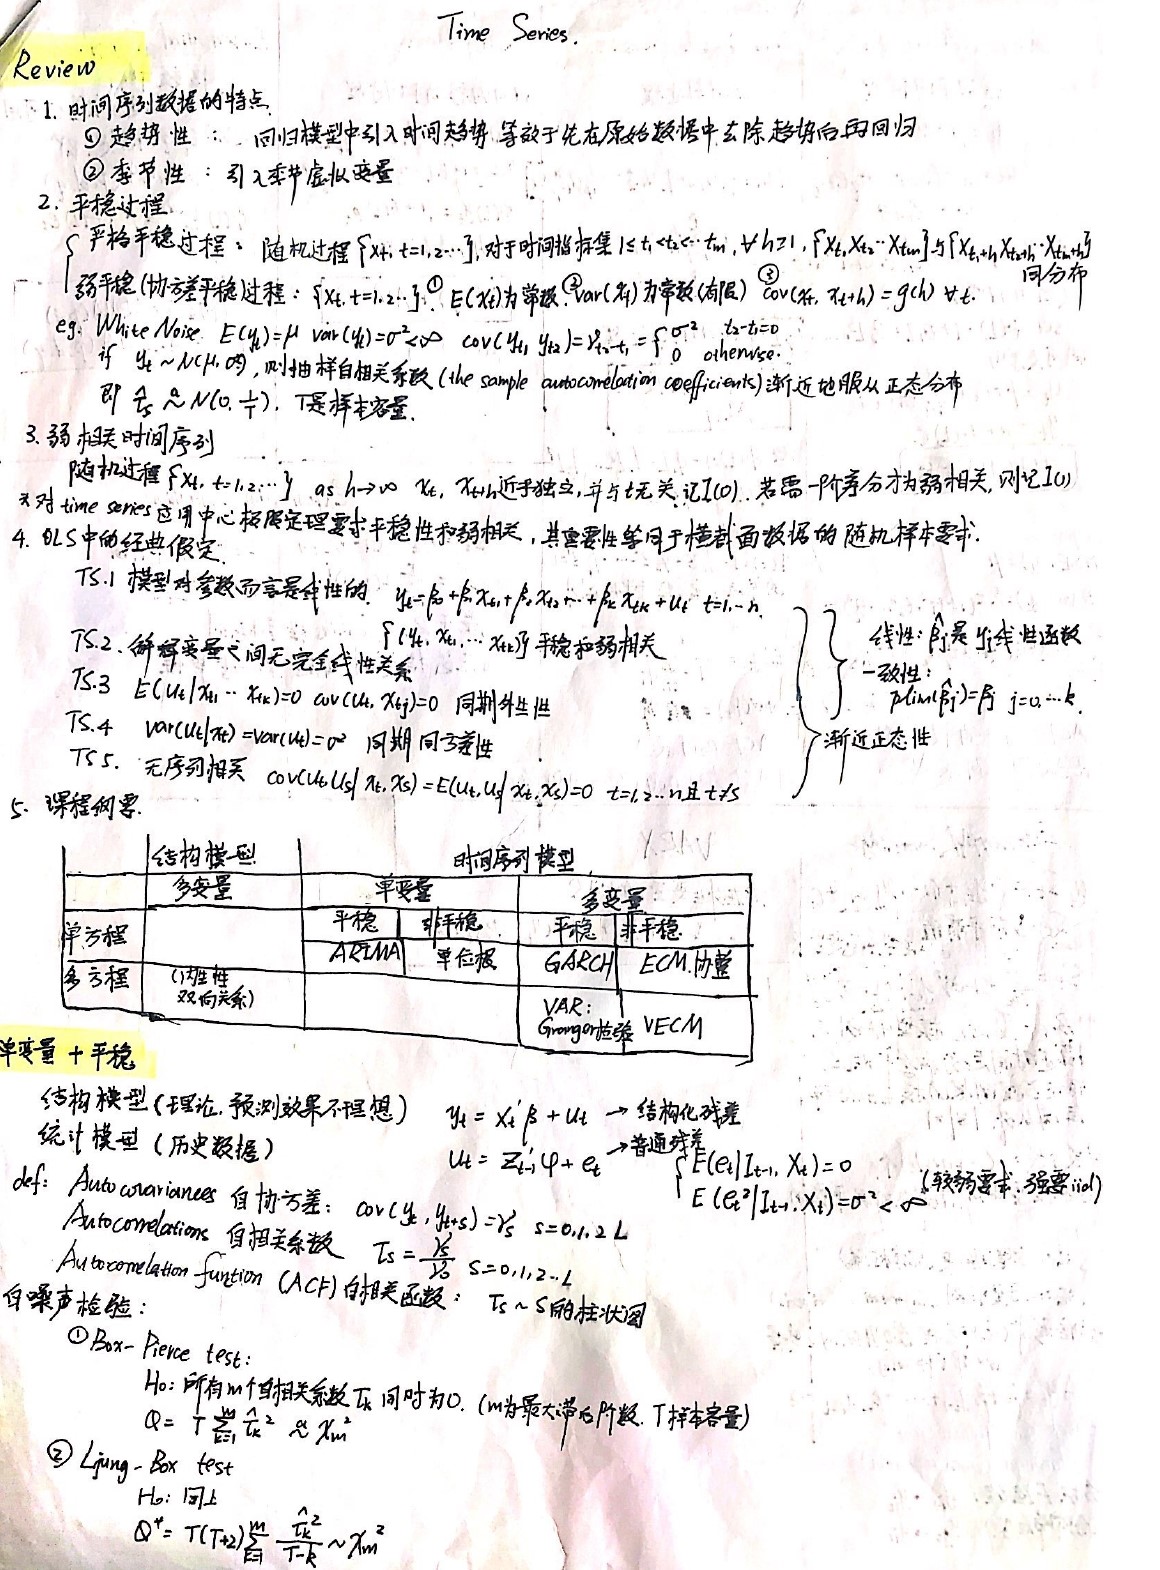 Time Series.
Review
1. 时间序列数据的特点
① 趋势性 : 回归模型中引入时间趋势 等效于先在原始数据中去除趋势后再回归
② 季节性 : 引入季节虚拟变量
2. 平稳过程
严格平稳过程: 随机过程{xt, t=1,2...}, 对于时间指标集 1≤t₁<t₂<...tm, ∀h≥1, {Xt₁ Xt₂...Xtm}与{Xt₁+h Xt₂+h...Xtm+h}
同分布
弱平稳(协方差平稳)过程: {xt, t=1,2...}: ① E(xt)为常数 ② var(xt)为常数(有限) ③ cov(xt, xt+h) = g(h) ∀t.
eg: White Noise E(yt)=μ var(yt)=σ²<∞ cov(yt₁ yt₂)=γt₂-t₁ = { σ² t₂-t₁=0
0 otherwise.
if yt ~ N(μ, σ²), 则抽样自相关系数 (the sample autocorrelation coefficients) 渐近地服从正态分布
即 τ̂s ≈ᵃ N(0, 1/T), T是样本容量.
3. 弱相关时间序列
随机过程{xt, t=1,2...} as h→∞ xt, xt+h近乎独立, 并与t无关 记I(0). 若需一阶差分才为弱相关, 则记I(1)
* 对time series应用中心极限定理要求平稳性和弱相关, 其重要性等同于横截面数据的随机样本要求.
4. OLS中的经典假定
TS.1 模型对参数而言是线性的. yt=β₀+β₁xt₁+β₂xt₂+...+βkxtk+ut t=1,...n.
{(yt, xt₁, ... xtk)} 平稳和弱相关
TS.2. 解释变量之间无完全线性关系
TS.3 E(ut|xt₁...xtk)=0 cov(ut, xtj)=0 同期外生性
TS.4 var(ut|xt)=var(ut)=σ² 同期同方差性
TS5. 无序列相关 cov(ut, us| xt, xs)=E(ut, us| xt, xs)=0 t=1,2...n且t≠s
线性: β̂j是yj线性函数
一致性:
plim(β̂j)=βj j=0,...k.
渐近正态性
5. 课程纲要.
结构模型 时间序列模型
多变量 单变量 多变量
单方程 平稳 非平稳 平稳 非平稳
ARIMA 单位根 GARCH ECM.协整
多方程 (内生性
双向关系)
VAR:
Granger检验 VECM
单变量 + 平稳
结构模型 (理论, 预测效果不理想) yt = xt'β + ut → 结构化残差
统计模型 (历史数据) ut = z't-1φ + et → 普通残差
{ E(et|It-1, Xt)=0
E(et²|It-1, Xt)=σ²<∞ (较弱要求, 强要iid)
def: Autocovariances 自协方差: cov(yt, yt+s)=γs s=0,1,2 L
Autocorrelations 自相关系数 τs = γs/γ₀ s=0,1,2..L
Autocorrelation funtion (ACF) 自相关函数: τs ~ s的柱状图
白噪声检验:
① Box-Pierce test:
H₀: 所有m个自相关系数τk同时为0. (m为最大滞后阶数. T样本容量)
Q = T Σᵐk=1 τ̂k² ≈ᵃ χm²
② Ljung-Box test
H₀: 同上
Q* = T(T+2) Σᵐk=1 τ̂k²/(T-k) ~ χm²